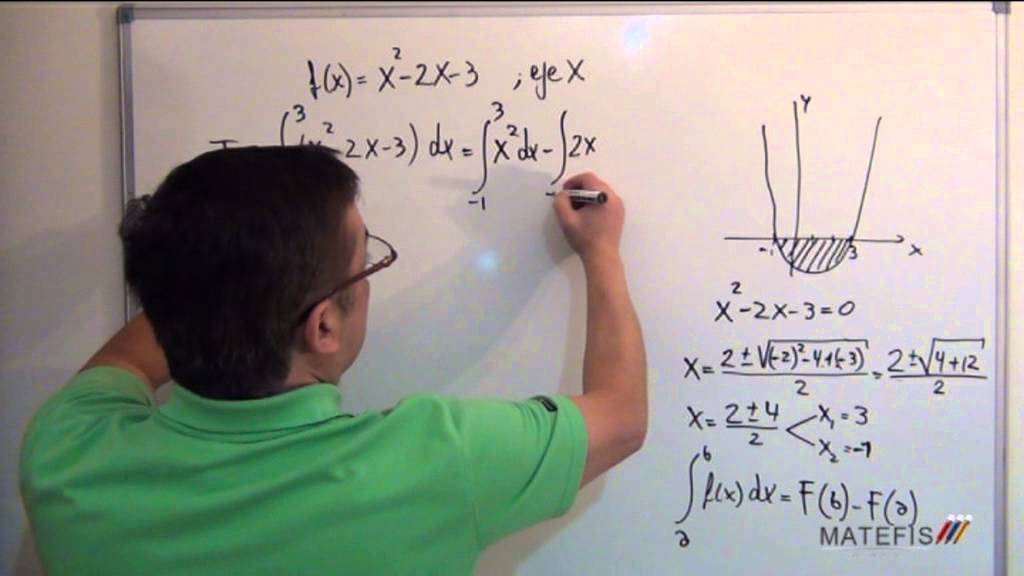 f(x) = x² - 2x - 3 ; eje X
∫₋₁³ (x² - 2x - 3) dx = ∫₋₁³ x² dx - ∫ 2x
Y
-1 3 x
x² - 2x - 3 = 0
x = (2 ± √((-2)² - 4·1·(-3)))/2 = (2 ± √(4 + 12))/2
x = (2 ± 4)/2 < x₁ = 3
x₂ = -1
∫ₐᵇ f(x) dx = F(b) - F(a)
MATEFIS